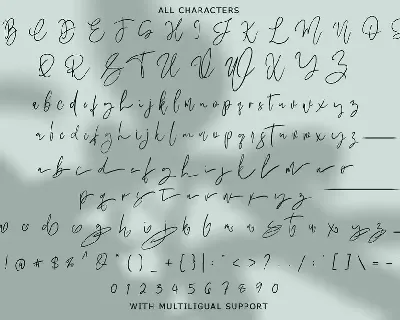 ALL CHARACTERS
B C D E F G H I J K L M N O
Q R S T U V W X Y Z
a b c d e f g h i j k l m n o p q r s t u v w x y z
a b c d e f g h i j k l m n o p q r s t u v w x y z
a b c d e f g h i j k l m n o
p q r s t u v w x y z
! @ # $ % ^ & * ( ) _ + { } | : " < > ? . . / ; : ' [ ] \ = -
0 1 2 3 4 5 6 7 8 9 0
WITH MULTILIGUAL SUPPORT